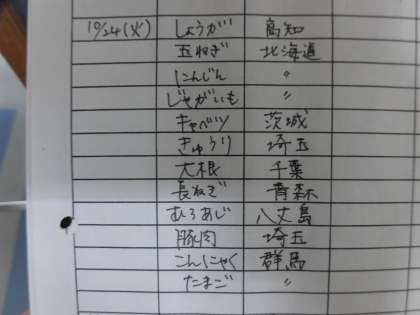 10/24(火) しょうが 高知
玉ねぎ 北海道
にんじん 〃
じゃがいも 〃
キャベツ 茨城
きゅうり 埼玉
大根 千葉
長ねぎ 青森
むろあじ 八丈島
豚肉 埼玉
こんにゃく 群馬
たまご 〃